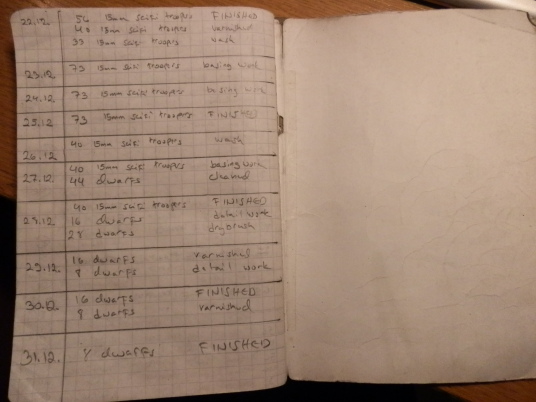 22.12. 15mm scifi troopers FINISHED
40 15mm scifi troopers varnished
33 15mm scifi troopers wash
23.12. 73 15mm scifi troopers basing work
24.12. 73 15mm scifi troopers basing work
25.12. 73 15mm scifi troopers FINISHED
26.12 40 15mm scifi troopers wash
27.12. 40 15mm scifi troopers basing work
44 dwarfs cleaned
28.12. 40 15mm scifi troopers FINISHED
16 dwarfs detail work
28 dwarfs drybrush
29.12. 16 dwarfs varnished
8 dwarfs detail work
30.12. 16 dwarfs FINISHED
8 dwarfs varnished
31.12. 8 dwarfs FINISHED